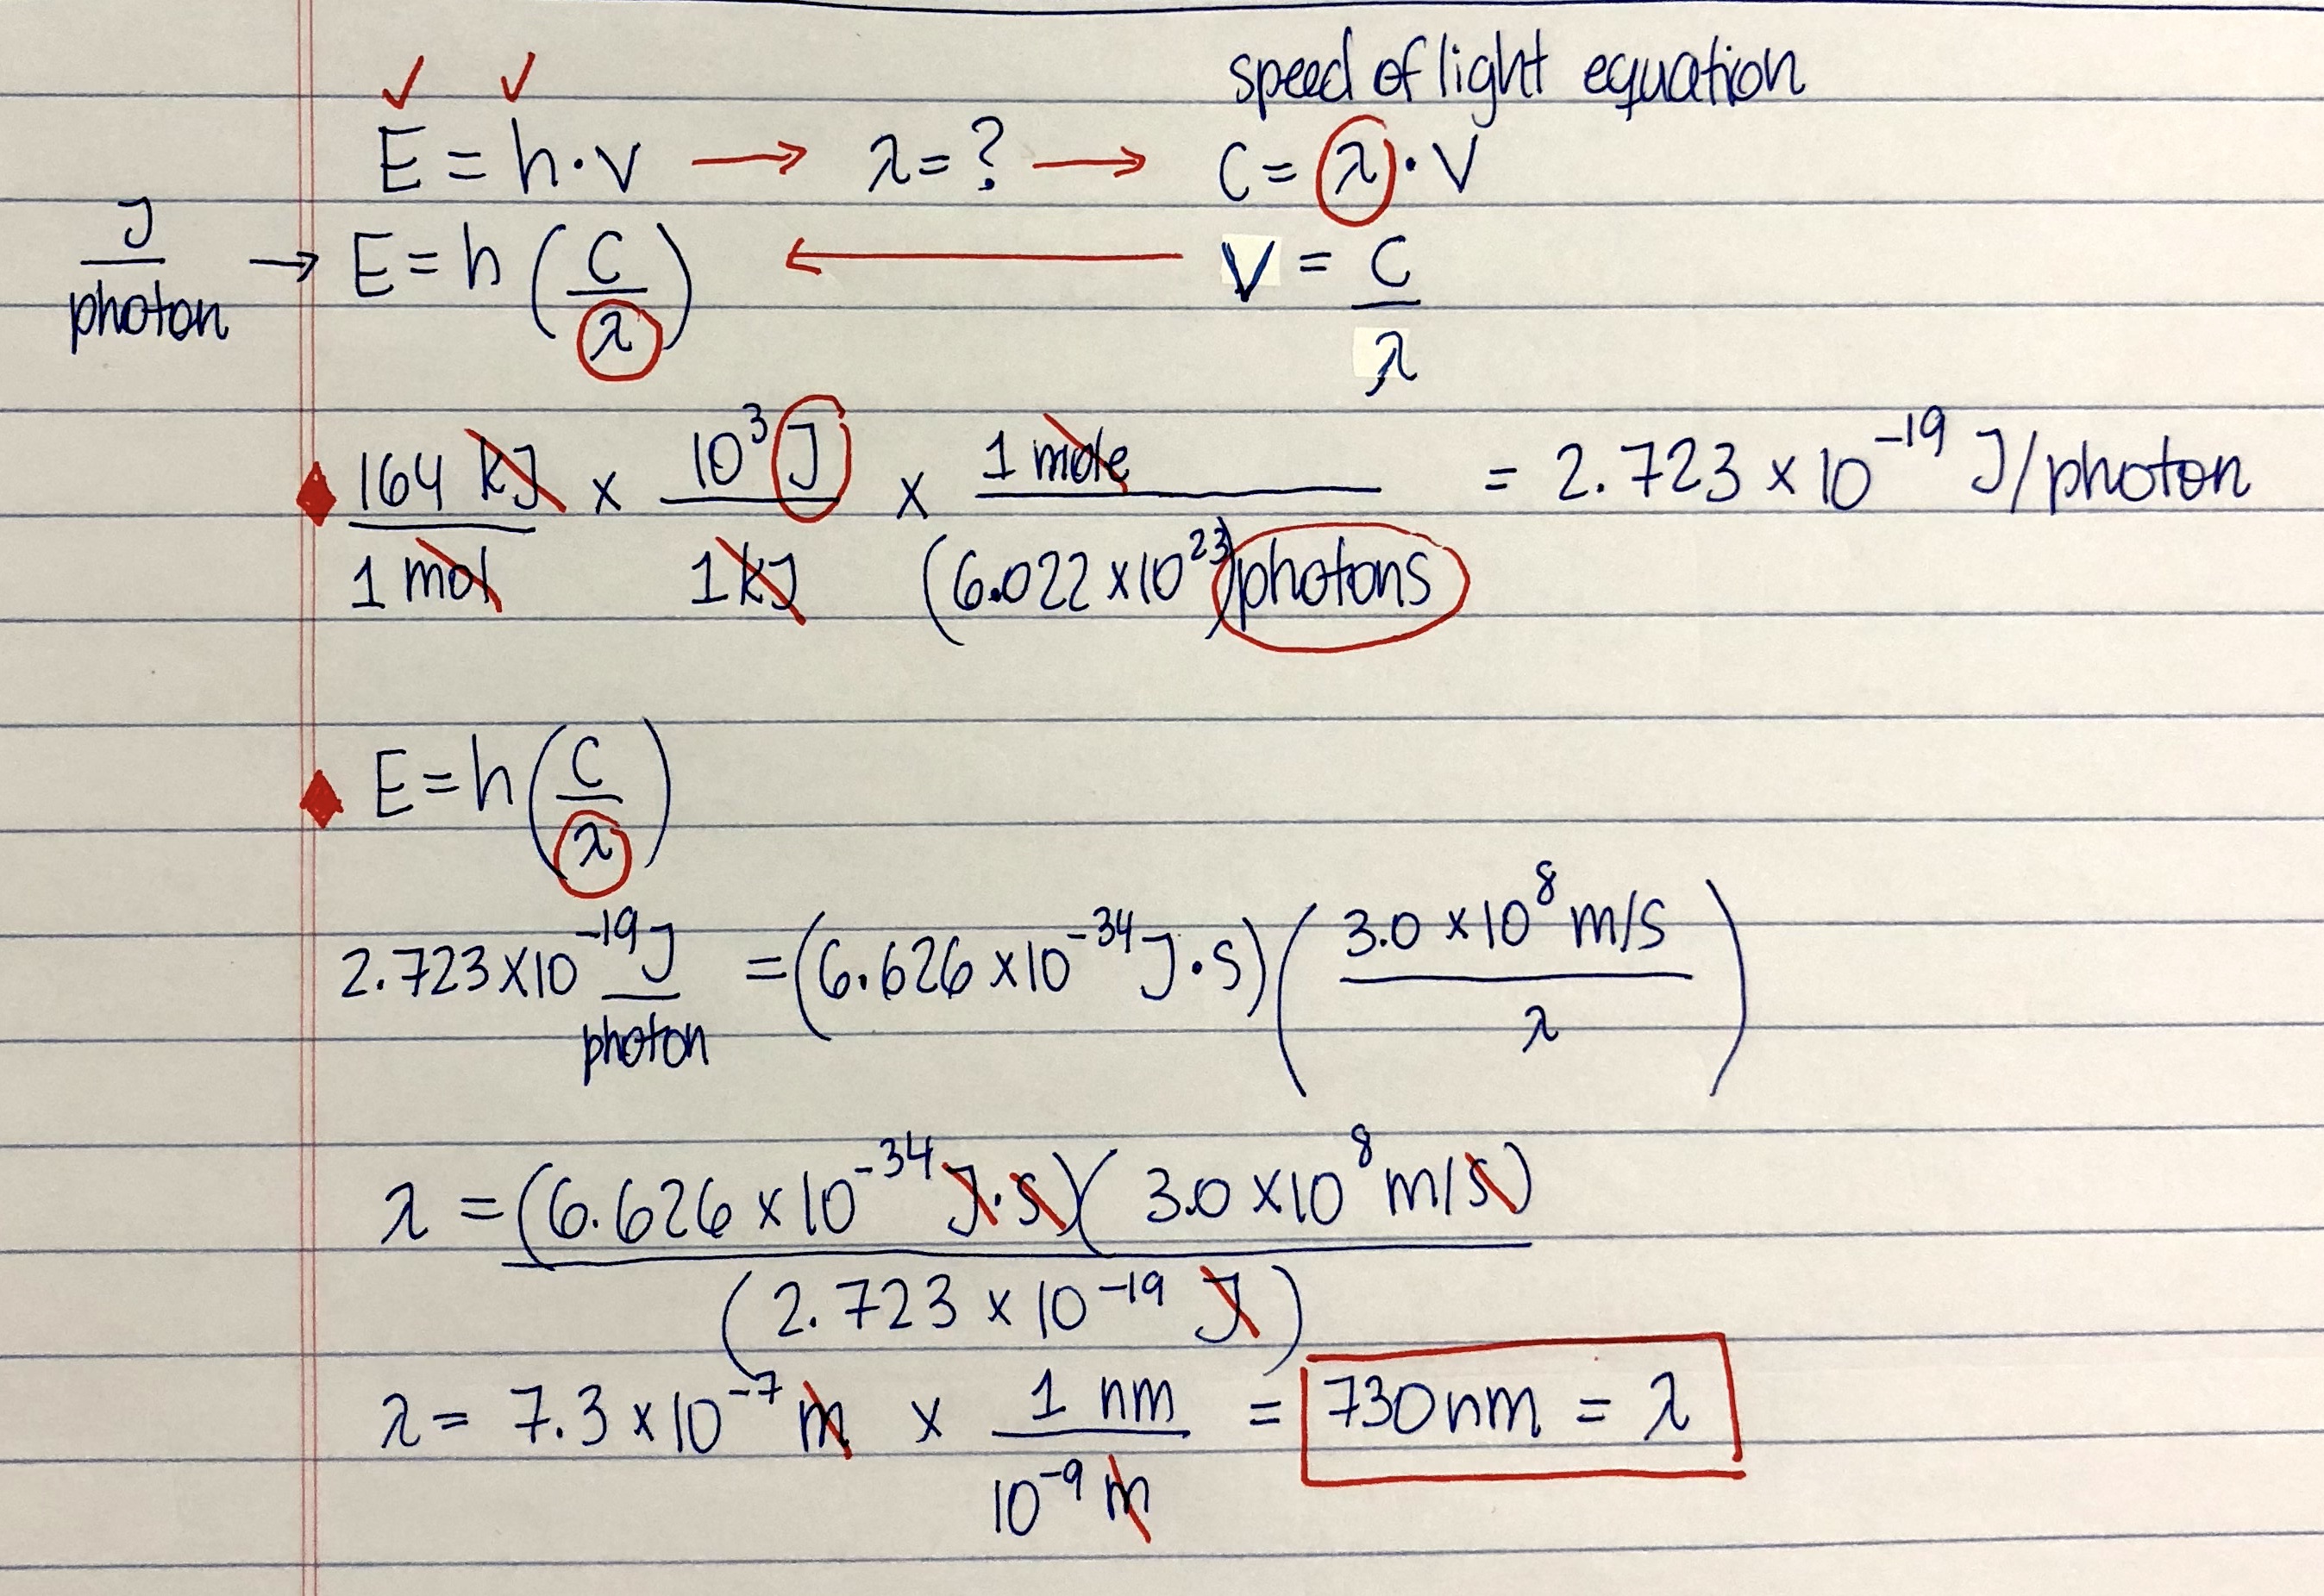 speed of light equation
E = h · v → λ = ? → C = λ · v
J/photon → E = h (C/λ) ← v = C/λ
164 kJ/1 mol x 10³ J/1 kJ x 1 mole/(6.022 x 10²³) photons = 2.723 x 10⁻¹⁹ J/photon
E = h (C/λ)
2.723 x 10⁻¹⁹ J/photon = (6.626 x 10⁻³⁴ J · s) (3.0 x 10⁸ m/s / λ)
λ = (6.626 x 10⁻³⁴ J · s) (3.0 x 10⁸ m/s)
(2.723 x 10⁻¹⁹ J)
λ = 7.3 x 10⁻⁷ m x 1 nm/10⁻⁹ m = 730 nm = λ